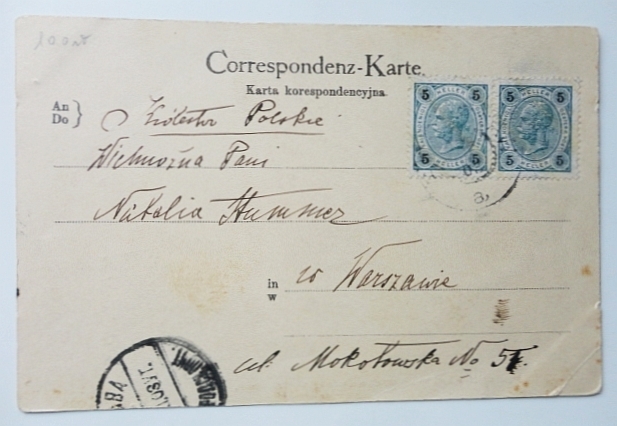 100zł
Correspondenz-Karte.
Karta korespondencyjna.
An
Do
Królestwo Polskie
Wielmożna Pani
Natalia Hummer
in
w
w Warszawie
ul. Mokotowska No
5 HELLER 5
5 HELLER 5
5 HELLER 5
5 HELLER 5